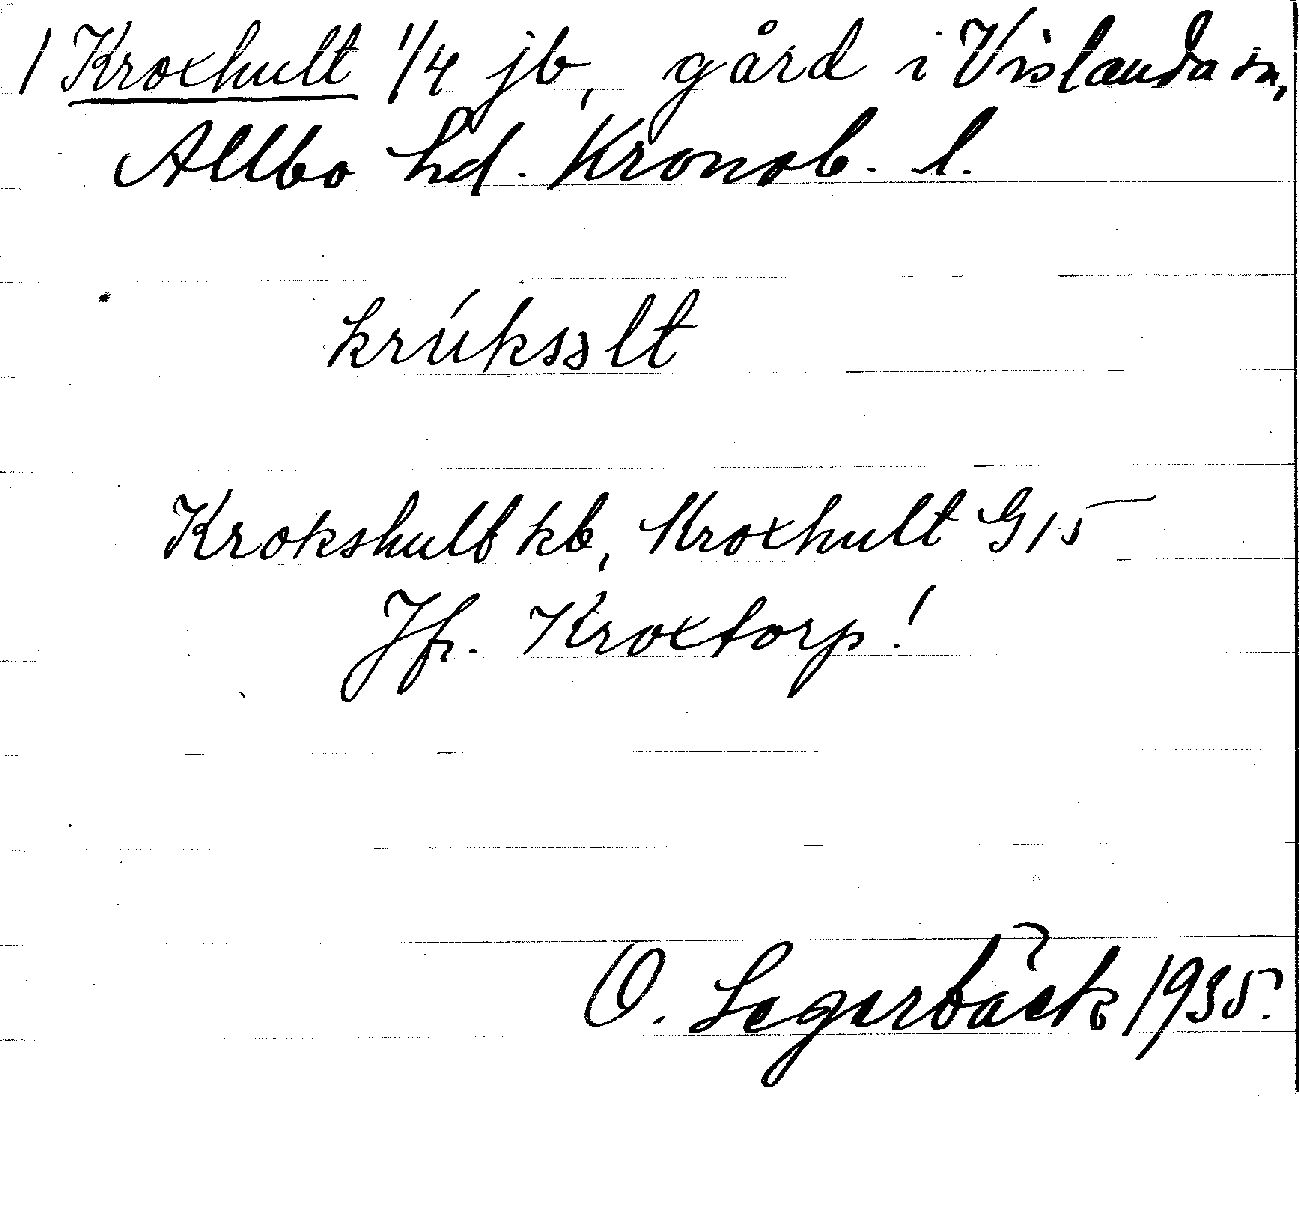 1 Kroxhult 1/4 jb, gård i Vislanda sn,
Allbo hd. Kronob. l.
krúksəlt
Krokshult kb, Kroxhult G 15
Jfr. Kroxtorp!
O. Lagerbäck 1935.